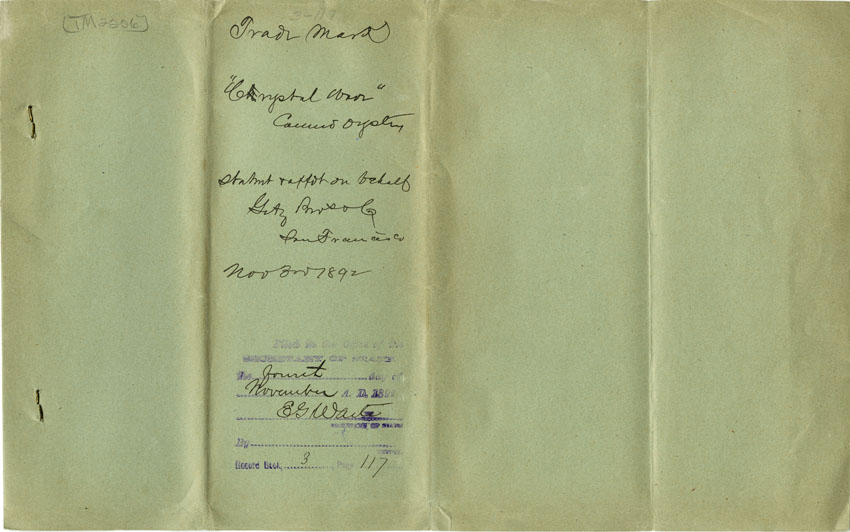 [TM2206]
Trade Mark
"Chrystal Wave"
Canned Oysters
Statmt & affdt on behalf
Getz Bros & Co
San Francisco
Nov 3rd 1892
Filed in the Office of the
SECRETARY OF STATE
the fourth day of
November A. D. 189
E G Waite
SECRETARY OF STATE
By
Record Book 3 Page 117